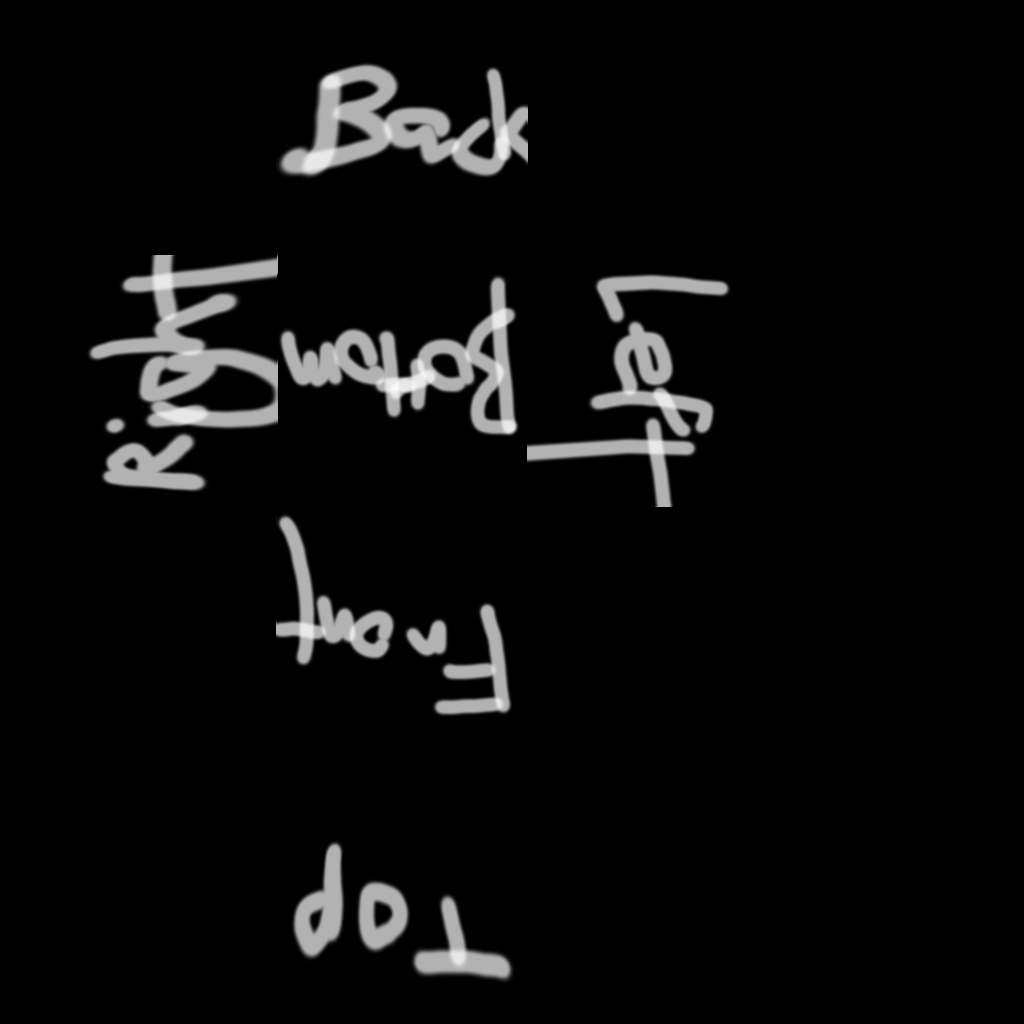 Back
Right
Bottom
Left
Front
Top